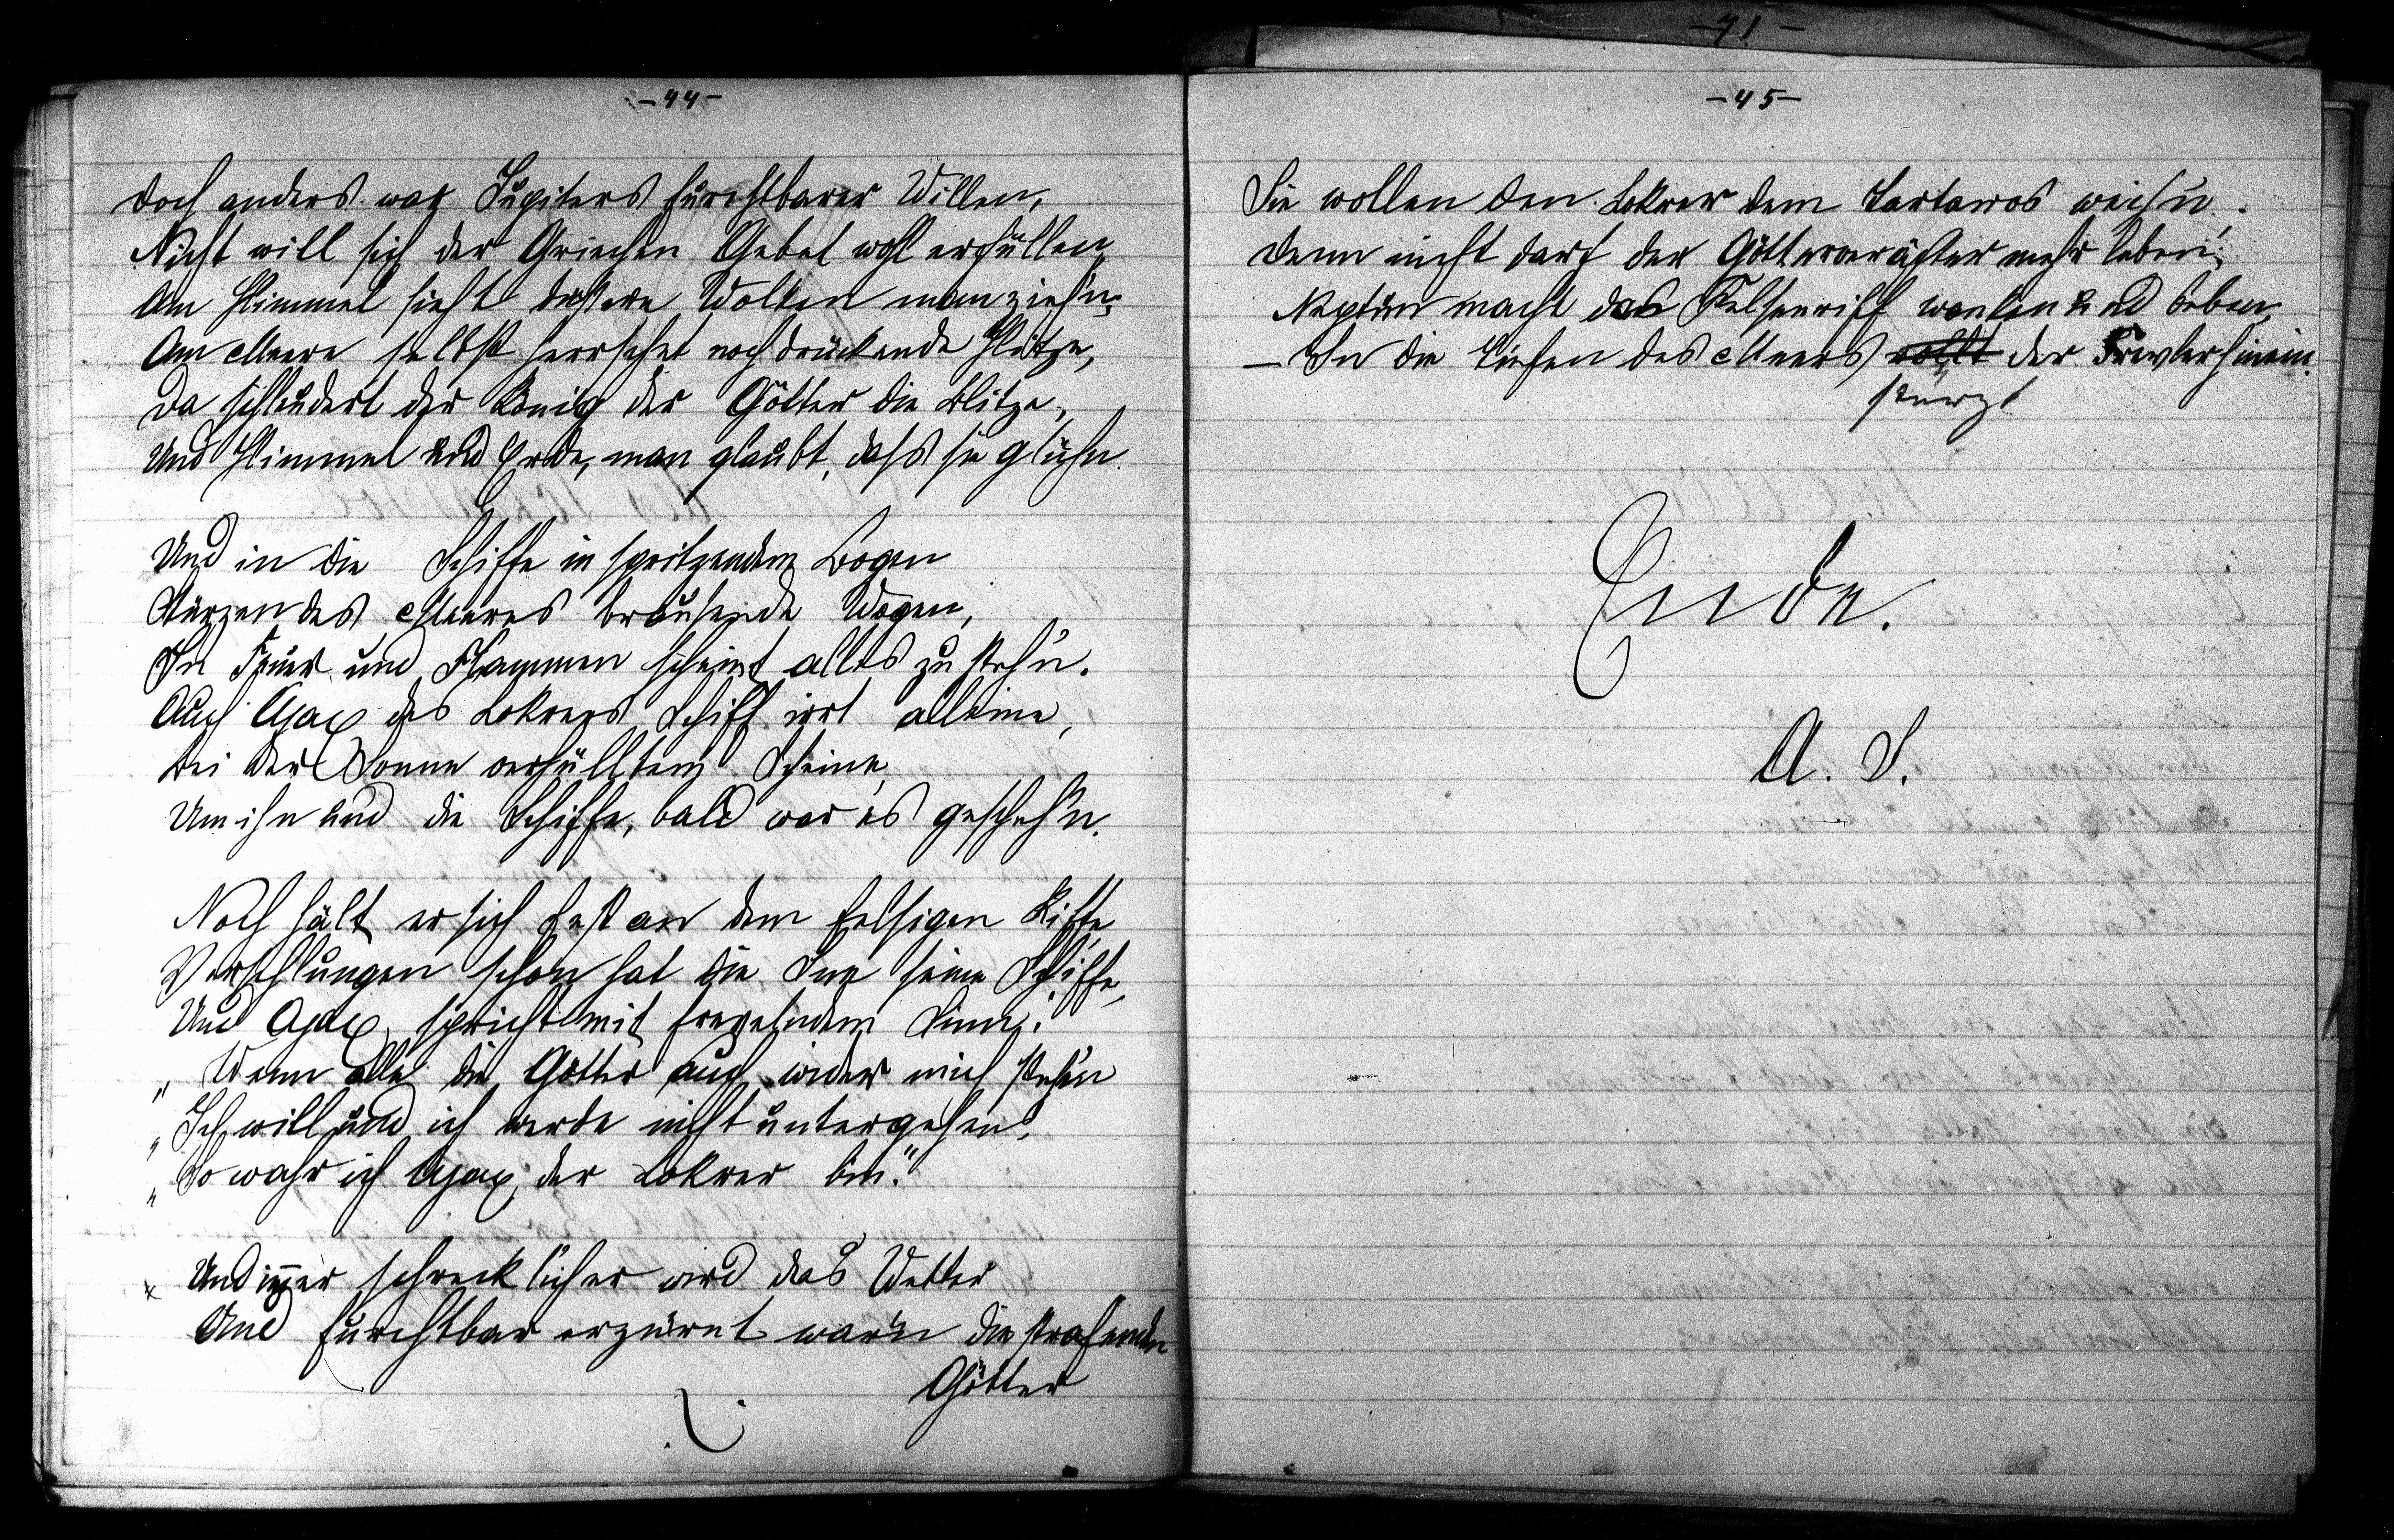 -44-
Doch anders war Jupiters furchtbarer Willen,
Nicht will sich der Griechen Gebet wohl erfüllen,
Am Himmel sieht düstere Wolken man zieh'n;
Am Meere selbst herrschet noch drückende Hitze,
Da schleudert der König der Götter die Blitze,
Und Himmel und Erde, man glaubt, dass sie glühn.
Und in die Schiffe in spritzendem Bogen
Stürzen des Meeres brausende Wogen,
In Feuer und Flammen scheint alles zu steh'n.
Auch Ajax des Lokrers Schiff irrt alleine,
Bei der Sonne verhülltem Scheine,
Um ihn und die Schiffe, bald war es gescheh'n.
Noch hält er sich fest an dem felsigen Riffe,
Verschlungen schon hat die See seine Schiffe,
Und Ajax, spricht mit frevelndem Sinn:
„Wenn alle die Götter auch wider mich steh'n
„Ich will und ich werde nicht untergehen,
„So wahr ich Ajax, der Lokrer bin."
Und im̅er schrecklicher wird das Wetter
Und furchtbar erzürnt war'n die strafenden
Götter
-71-
-45-
Sie wollen den Lokrer dem Tartaros weih'n.
Denn nicht darf der Götterverächter mehr leben;
Neptun macht das Felsenriff wanken und beben,
– In die Tiefen des Meers rollt der Frevler hinein.
stürzt
Ende.
A. S.